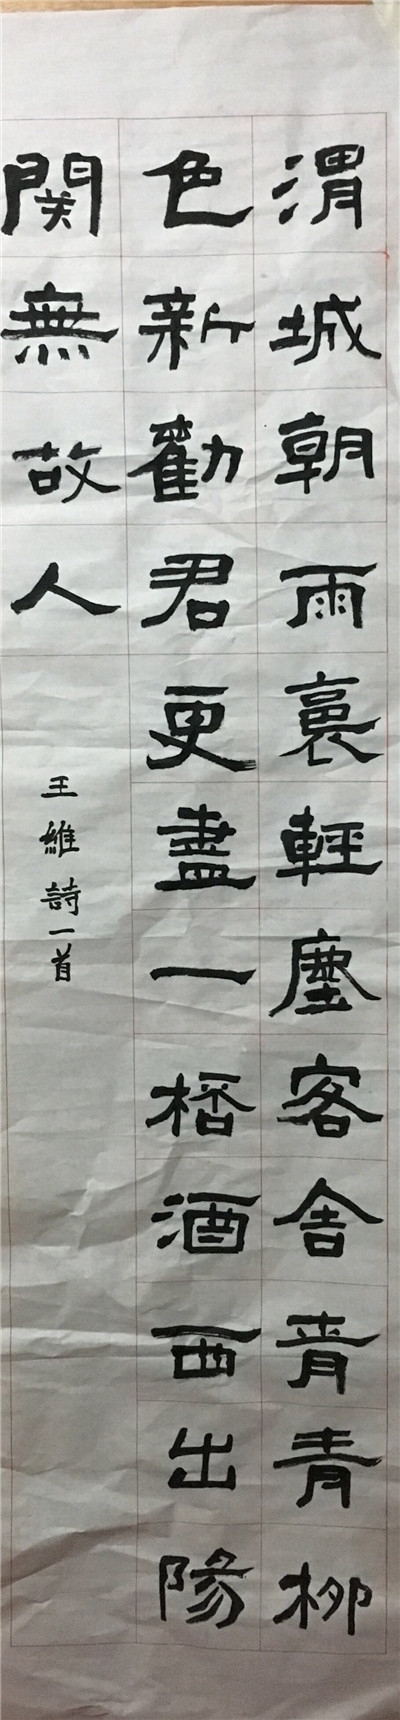 渭城朝雨裛輕塵客舍青青柳
色新勸君更盡一桮酒西出陽
関無故人
王維詩一首